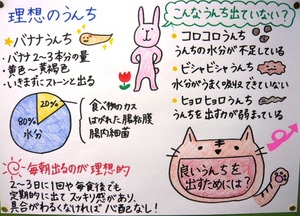 理想のうんち
バナナうんち
・バナナ2～3本分の量
・黄色～黄褐色
・いきまずにストーンと出る
20%
80%
水分
食べ物のカス
はがれた腸粘膜
腸内細菌
毎朝出るのが理想的
2～3日に1回や毎食後でも
定期的に出てスッキリ感があり、
具合がわるくなければ心配なし!
こんなうんち出ていない?
・コロコロうんち
うんちの水分が不足している
・ビシャビシャうんち
水分がうまく吸収できていない
・ヒョロヒョロうんち
うんちを出す力が弱まっている
良いうんちを
出すためには?